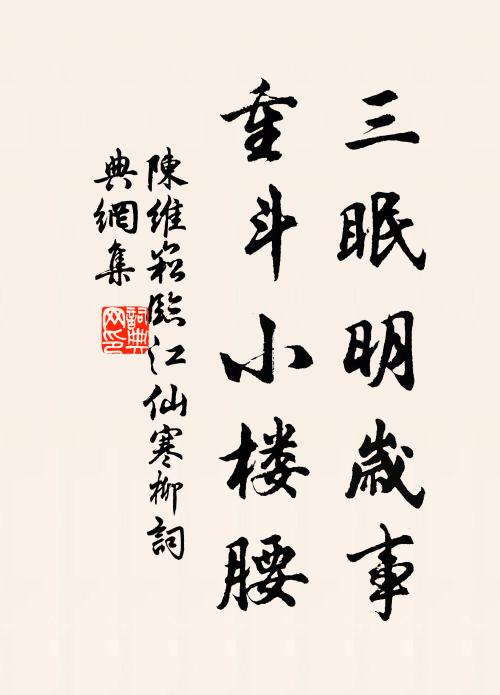 三眠明歲事
重斗小楼腰
陳維崧臨江仙寒柳詞
典網集
詞典網印